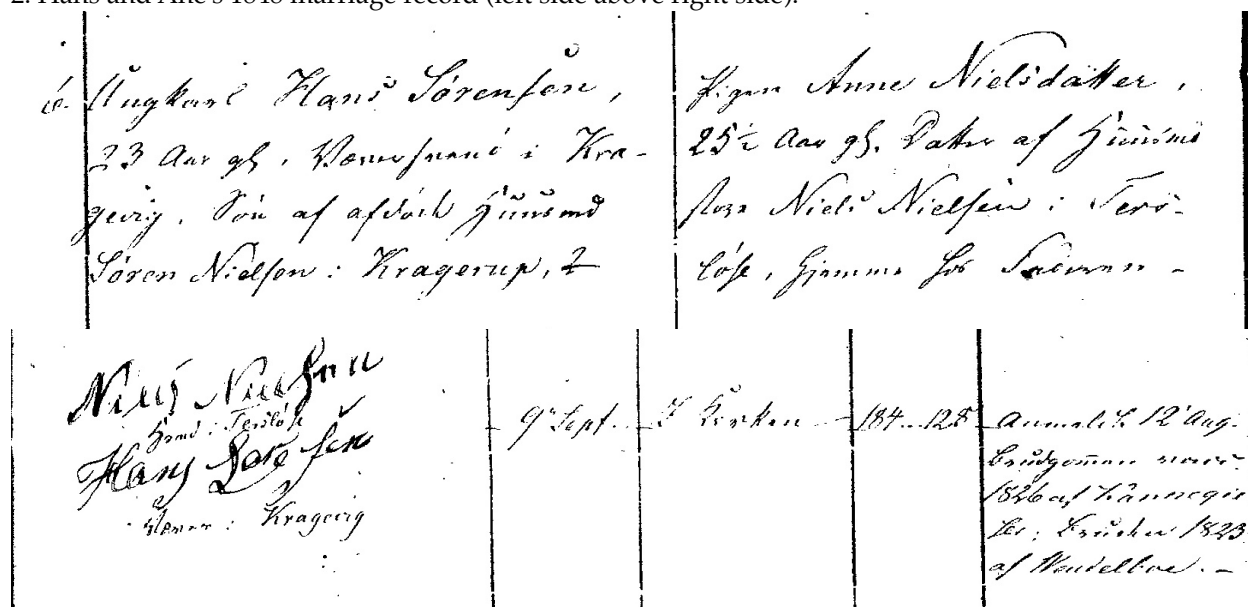 2. Hans and Ane's 1848 marriage record (left side above right side):
6. Ungkarl Hans Sørensen,
23 Aar gl, Væversvend i Kra-
gevig, Søn af afdøde Huusmd
Søren Nielsen i Kragerup, 2
Pigen Anne Nielsdatter,
25½ Aar gl, Datter af Huusmd
Niels Nielsen i Ters-
løse, hjemme hos
Niels Nielsen
Hmd i Tersløse
Hans Sørensen
Væver i Kragevig
9 Sept.
I Kirken
184 128
Anmeldt 12 Aug.
Brudgommen vacc.
1826 af
Bruden 1823
af Wendelboe. -